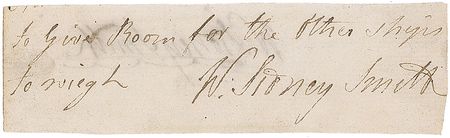 to give Room for the other ships
to wiegh W. Sidney Smith